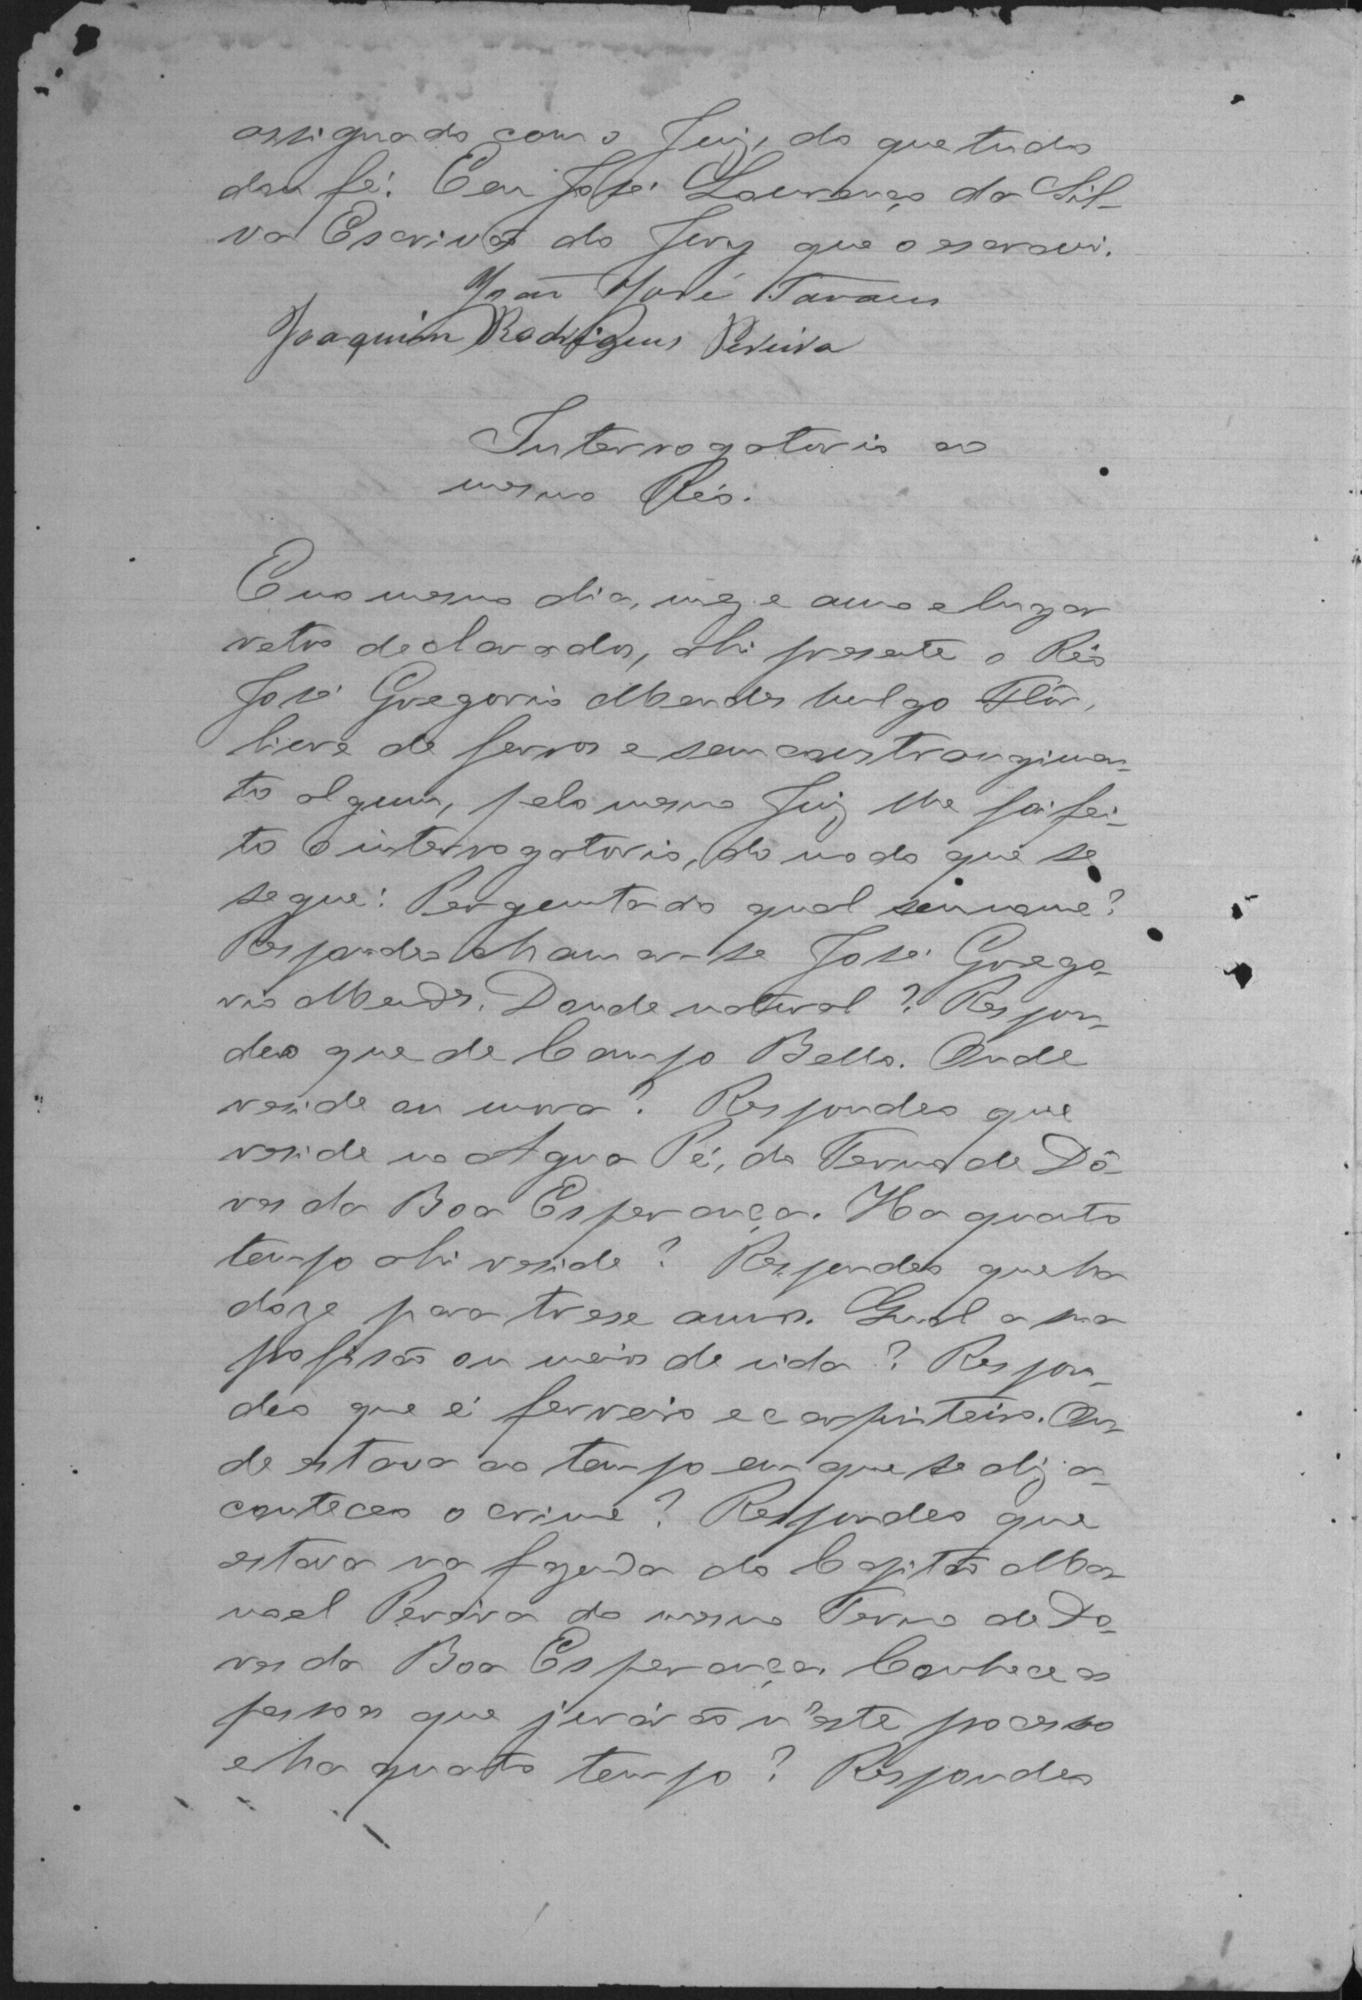 assignado com o Juiz, do que tudo
dou fé. E eu José Lourenço da Sil-
va Escrivão do Jury que o escrevi.
João José Tavares
Joaquim Rodrigues Pereira
Interrogatorio ao
mesmo Réo.
E no mesmo dia, mez e anno e lugar
retro declarados, ahi presente o Réo
José Gregorio Mendes vulgo Flôr,
livre de ferros e sem constrangimen-
to algum, pelo mesmo Juiz lhe foi fei-
to o interrogatorio, do modo que se
segue: Perguntado qual seu nome?
Respondeo chamar-se José Grego-
rio Mendes. Donde natural? Respon-
deo que de Campo Bello. Onde
reside ou mora? Respondeo que
reside no Agua Pé, do Termo de Dô-
res da Boa Esperança. Ha quanto
tempo ahi reside? Respondeo que ha
doze para trese annos. Qual a sua
profissão ou meio de vida? Respon-
deo que é ferreiro e carpinteiro. On-
de estava ao tempo em que se diz a-
conteceo o crime? Respondeo que
estava na fazenda do Capitão Ma-
noel Pereira do mesmo Termo de Do-
res da Boa Esperança. Conhece as
pessoas que jurárão n'este processo
e ha quanto tempo? Respondeo